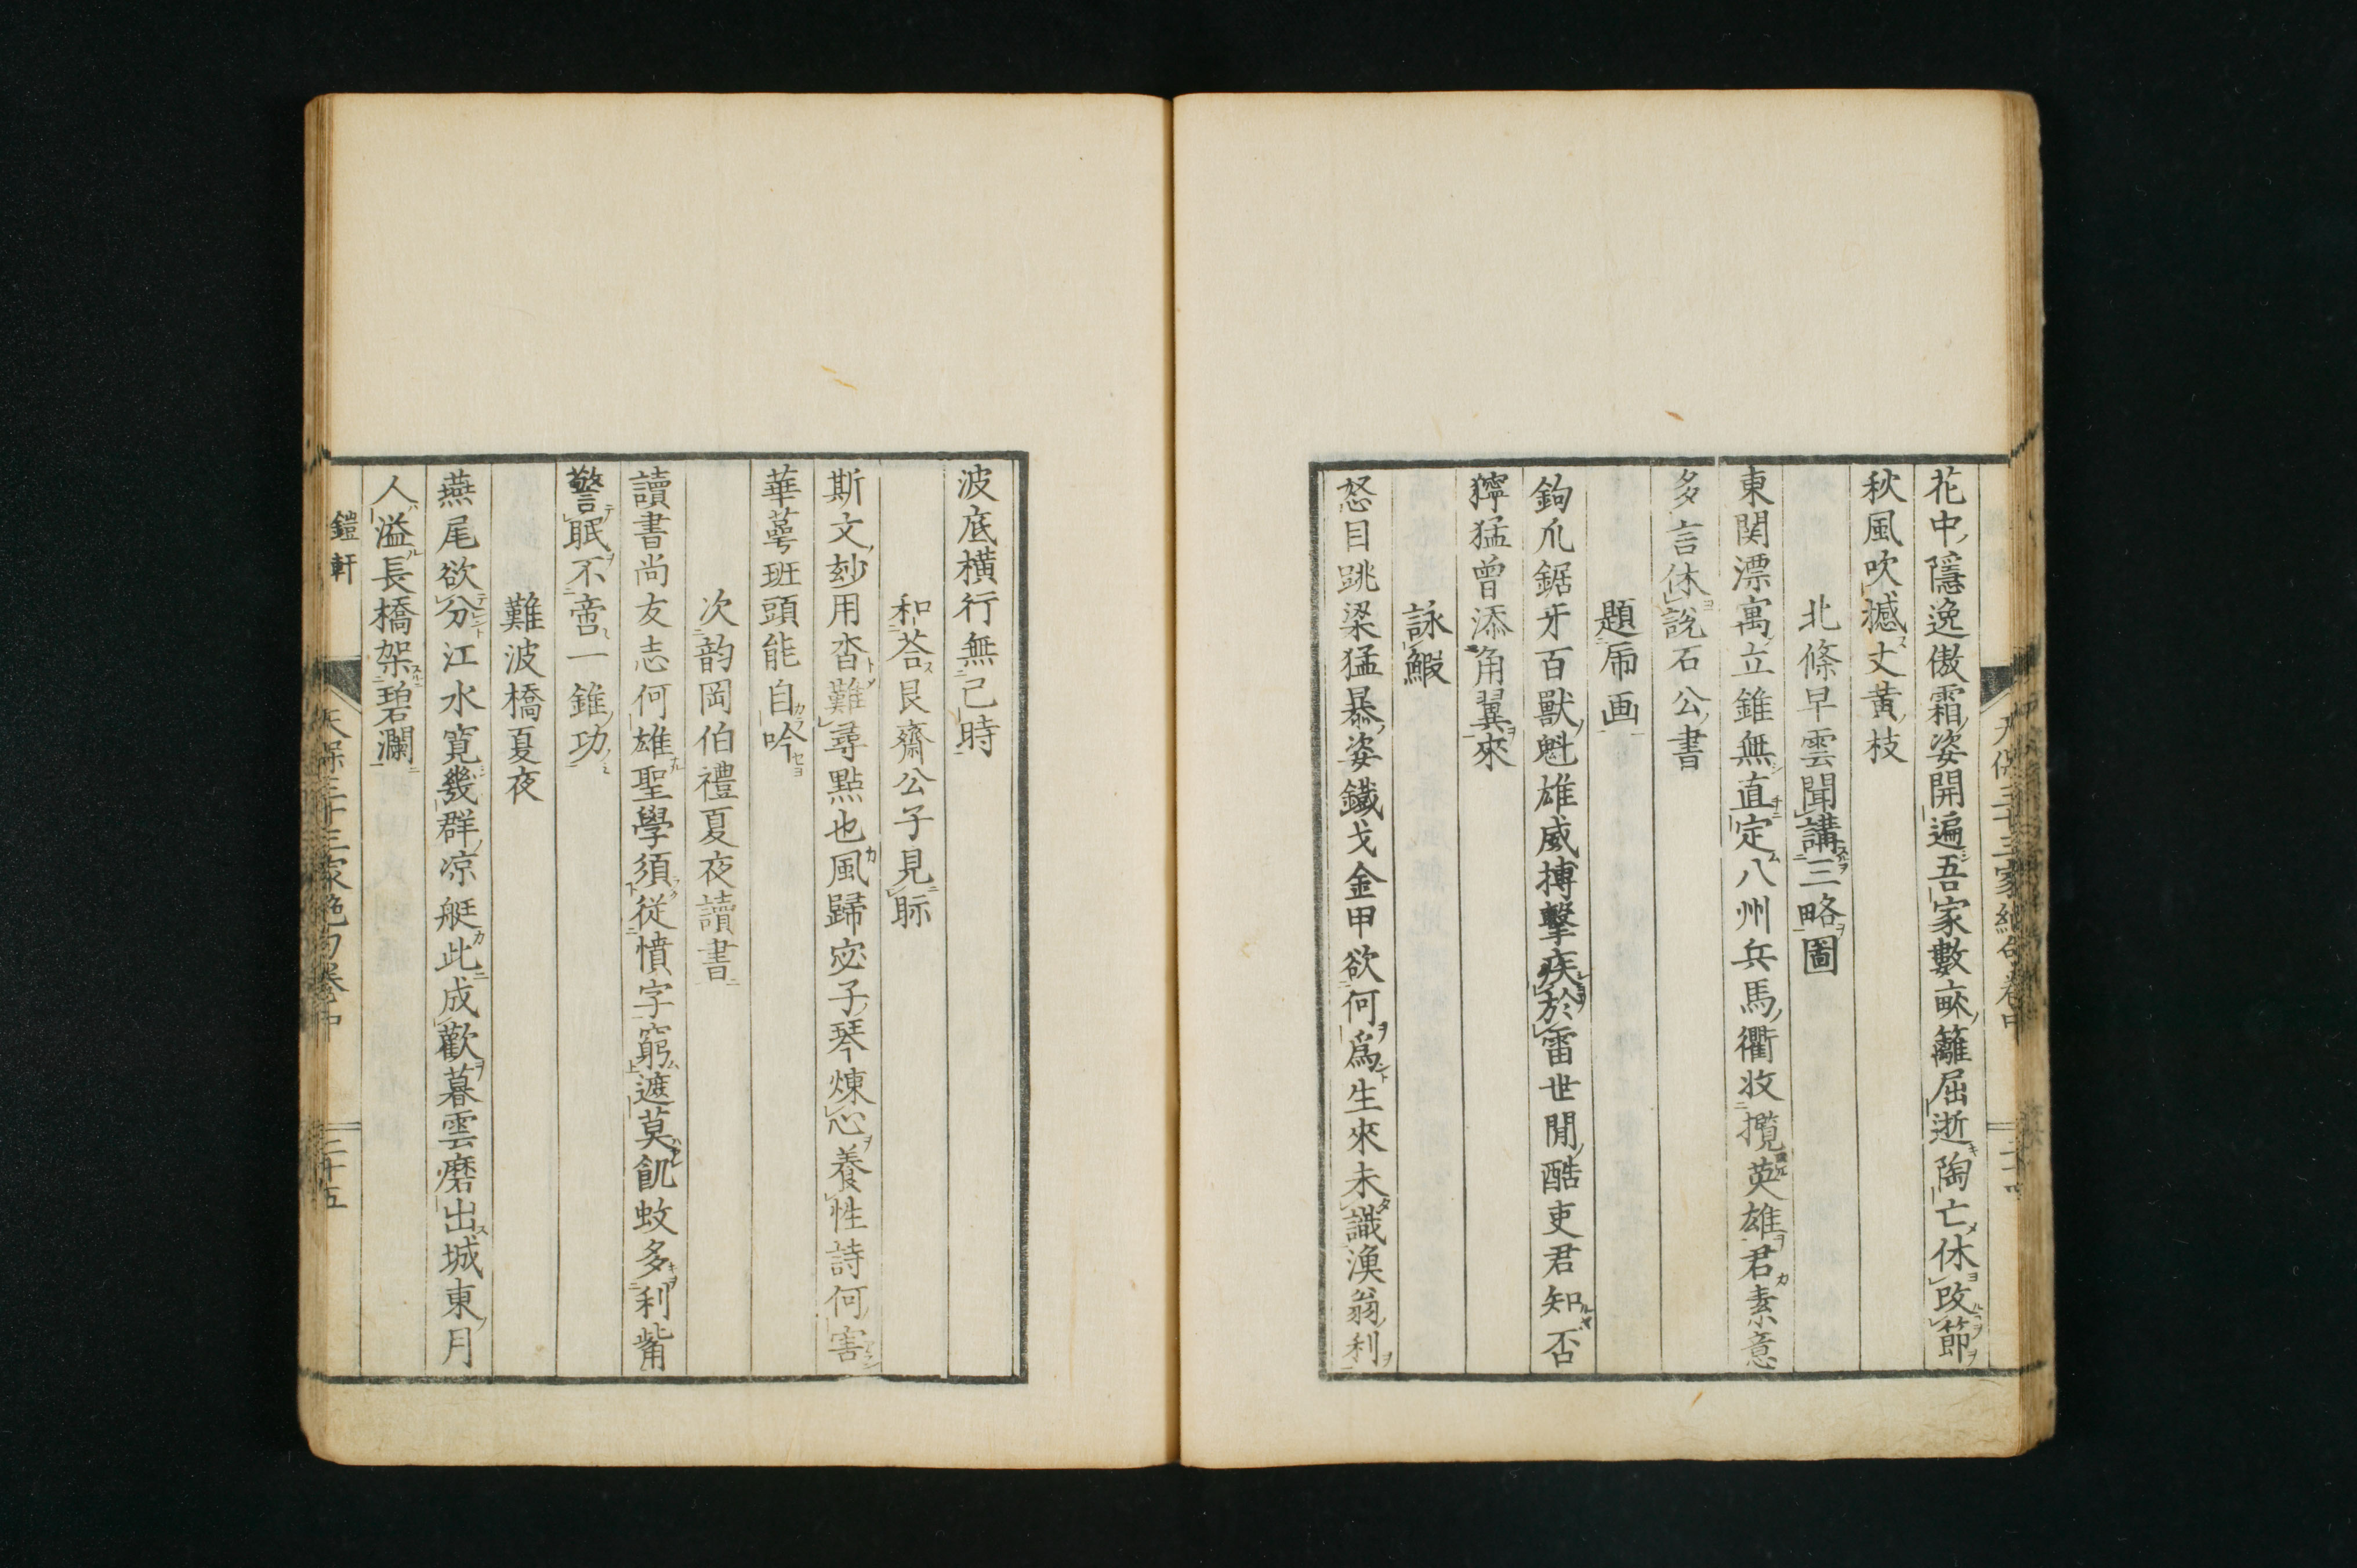 花中隱逸傲霜姿開遍吾家數畝籬屈逝陶亡休改節
秋風吹撼丈黄枝
北條早雲聞講三略圖
東関漂寓立錐無直定八州兵馬衢收攬英雄君素意
多言休說石公書
題乕画
鉤爪鋸牙百獸魁雄威搏撃疾於雷世間酷吏君知否
獰猛曾添角翼來
詠鰕
怒目跳梁猛暴姿鐵戈金甲欲何爲生來未識漁翁利
波底橫行無已時
和荅艮齋公子見眎
斯文妙用杳難尋點也風歸宓子琴煉心養性詩何害
華蕚班頭能自吟
次韵岡伯禮夏夜讀書
讀書尚友志何雄聖學須從憤字窮遮莫飢蚊多利觜
警眠不啻一錐功
難波橋夏夜
燕尾欲分江水寬幾群凉艇此成歡暮雲磨出城東月
人溢長橋架碧瀾
鎧軒
天保三十三家絶句卷中
二十五